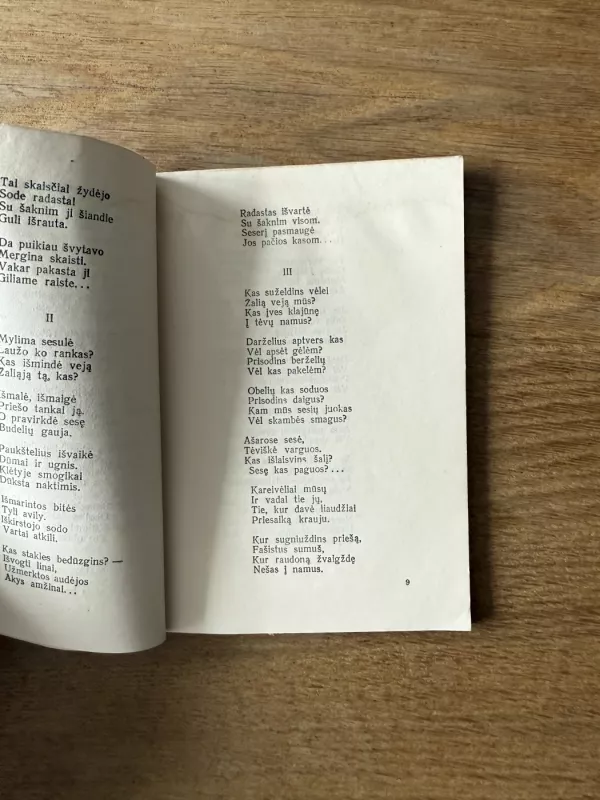 Tai skaisčiai žydėjo
Sode radasta!
Su šaknim ji šiandie
Guli išrauta.
Da puikiau švytavo
Mergina skaisti.
Vakar pakasta ji
Giliame raiste...
II
Mylima sesulė
Laužo ko rankas?
Kas išmindė veją
Žaliąją tą, kas?
Išmalė, išmaigė
Priešo tankai ją.
O pravirkdė sesę
Budelių gauja.
Paukštelius išvaikė
Dūmai ir ugnis.
Klėtyje smogikai
Dūksta naktimis.
Išmarintos bitės
Tyli avily.
Iškirstojo sodo
Vartai atkili.
Kas stakles bedūzgins? —
Išvogti linai,
Užmerktos audėjos
Akys amžinai...
Radastas išvartė
Su šaknim visom.
Seserį pasmaugė
Jos pačios kasom...
III
Kas suželdins vėlei
Žalią veją mūs?
Kas įves klajūnę
Į tėvų namus?
Darželius aptvers kas
Vėl apsėt gėlėm?
Prisodins berželių
Vėl kas pakelėm?
Obelių kas soduos
Prisodins daigus?
Kam mūs sesių juokas
Vėl skambės smagus?
Ašarose sesė,
Tėviškė varguos.
Kas išlaisvins šalį?
Sesę kas paguos?...
Kareivėliai mūsų
Ir vadai tie jų,
Tie, kur davė liaudžiai
Priesaiką krauju.
Kur sugniuždins priešą,
Fašistus sumuš,
Kur raudoną žvaigždę
Nešas į namus.
9